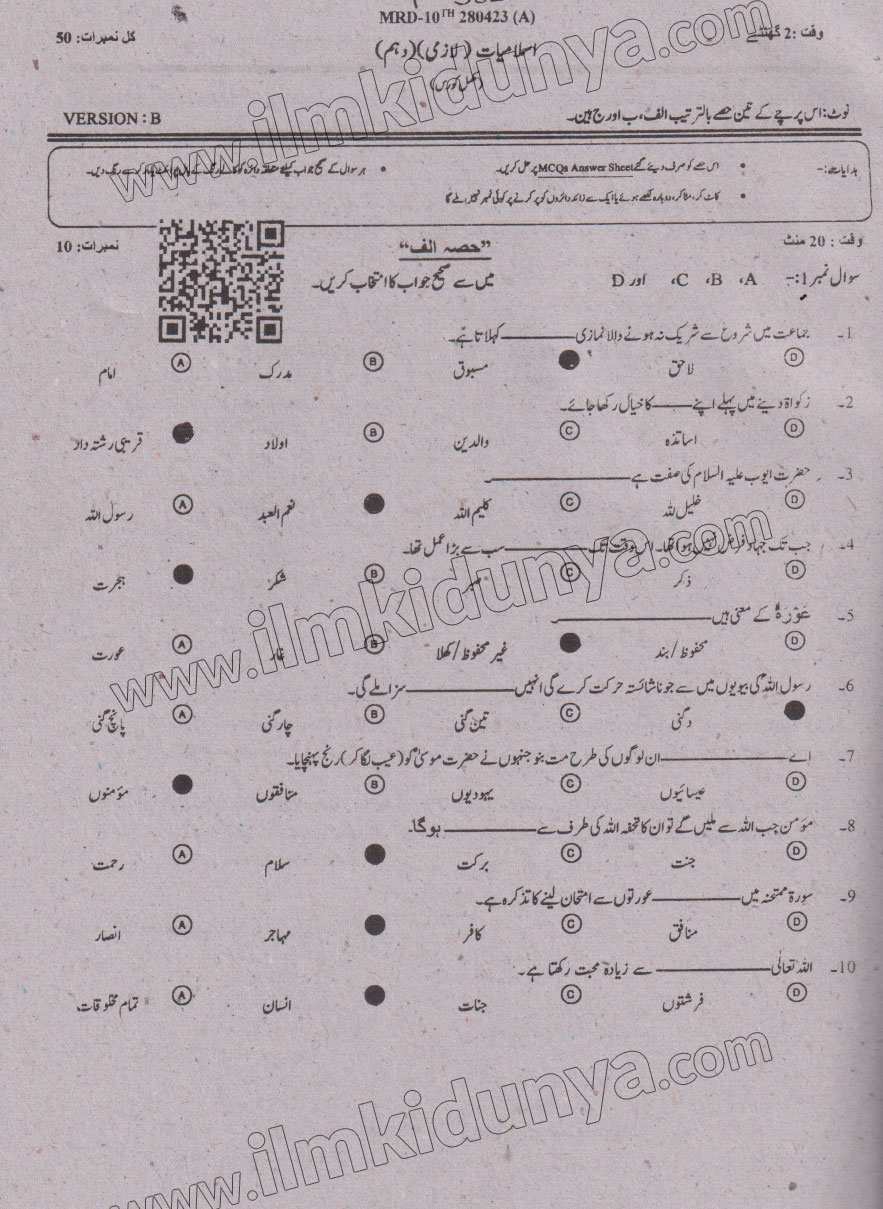 MRD-10TH 280423 (A)
وقت :2 گھنٹے
اسلامیات (لازمی)(دہم)
کل نمبرات: 50
(مکمل کورس)
نوٹ:اس پرچے کے تین حصے بالترتیب الف، ب اور ج ہیں۔
VERSION : B
ہدایات:-
• اس حصے کو صرف دیئے گئے MCQs Answer Sheet پر حل کریں۔
• ہر سوال کے صحیح جواب کیلئے متعلقہ دائرہ کو کالے رنگ کے
• کاٹ کر، مٹا کر، دوبارہ لکھے ہوئے یا ایک سے زائد دائروں کو پُر کرنے پر کوئی نمبر نہیں ملے گا
وقت : 20 منٹ
”حصہ الف“
نمبرات: 10
سوال نمبر 1:- A، B، C، اور D میں سے صحیح جواب کا انتخاب کریں۔
1۔ جماعت میں شروع سے شریک نہ ہونے والا نمازی ــــــــــ کہلاتا ہے۔
D لاحق مسبوق B مدرک A امام
2۔ زکواۃ دینے میں پہلے اپنے ــــــ کا خیال رکھا جائے۔
D اساتذہ C والدین B اولاد قریبی رشتہ دار
3۔ حضرت ایوب علیہ السلام کی صفت ہے ــــــــــ۔
D خلیل للہ C کلیم اللہ نعم العبد A رسول اللہ
4۔ جب تک جہاد فرض نہیں ہوا تھا۔ اس وقت تک ــــــــــ سب سے بڑا عمل تھا۔
D ذکر C صبر B شکر ہجرت
5۔ عَوْرَةٌ کے معنی ہیں ــــــــــ۔
D محفوظ/بند غیر محفوظ/کھلا B غار A عورت
6۔ رسول اللہؐ کی بیویوں میں سے جو ناشائستہ حرکت کرے گی انہیں ــــــــــ سزا ملے گی۔
دگنی C تین گنی B چار گنی A پانچ گنی
7۔ اے ــــــــــ ان لوگوں کی طرح مت بنو جنہوں نے حضرت موسیٰؑ کو (عیب لگا کر) رنج پہنچایا۔
D عیسائیوں C یہودیوں B منافقوں مؤمنوں
8۔ مؤمن جب اللہ سے ملیں گے تو ان کا تحفہ اللہ کی طرف سے ــــــــــ ہوگا۔
D جنت C برکت سلام A رحمت
9۔ سورۃ ممتحنہ میں ــــــــــ عورتوں سے امتحان لینے کا تذکرہ ہے۔
D منافق C کافر مہاجر A انصار
10۔ اللہ تعالٰی ــــــــــ سے زیادہ محبت رکھتا ہے۔
D فرشتوں C جنات انسان A تمام مخلوقات
www.ilmkidunya.com
www.ilmkidunya.com
www.ilmkidunya.com